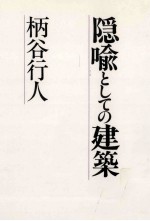 隠喩としての建築
柄谷行人